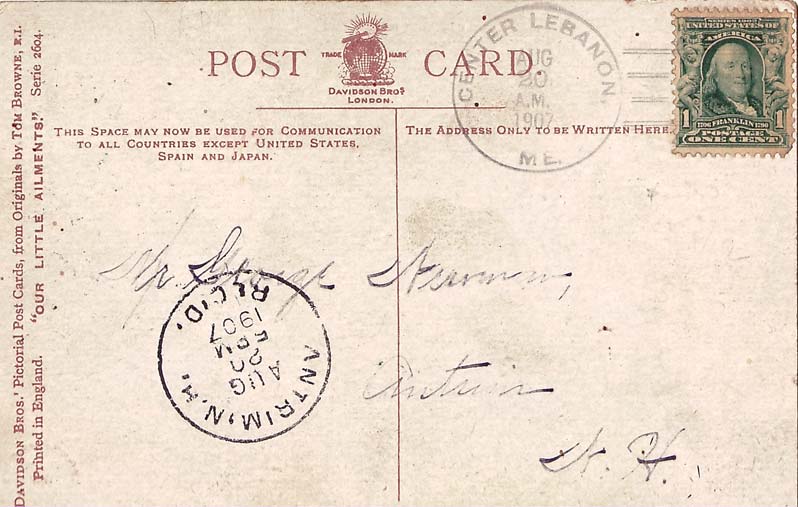 POST CARD.
TRADE MARK
DAVIDSON BROS.
LONDON.
THIS SPACE MAY NOW BE USED FOR COMMUNICATION
TO ALL COUNTRIES EXCEPT UNITED STATES,
SPAIN AND JAPAN.
THE ADDRESS ONLY TO BE WRITTEN HERE.
CENTER LEBANON,
AUG
20
A.M.
1907
ME.
SERIES 1902
UNITED STATES OF
AMERICA
1706 FRANKLIN 1790
1 POSTAGE 1
ONE CENT
Mr. George
Antrim
N. H.
ANTRIM, N.H.
AUG
20
5 PM
1907
REC'D.
DAVIDSON BROS.' Pictorial Post Cards, from Originals by TOM BROWNE, R.I.
Printed in England. "OUR LITTLE AILMENTS." Serie 2604.